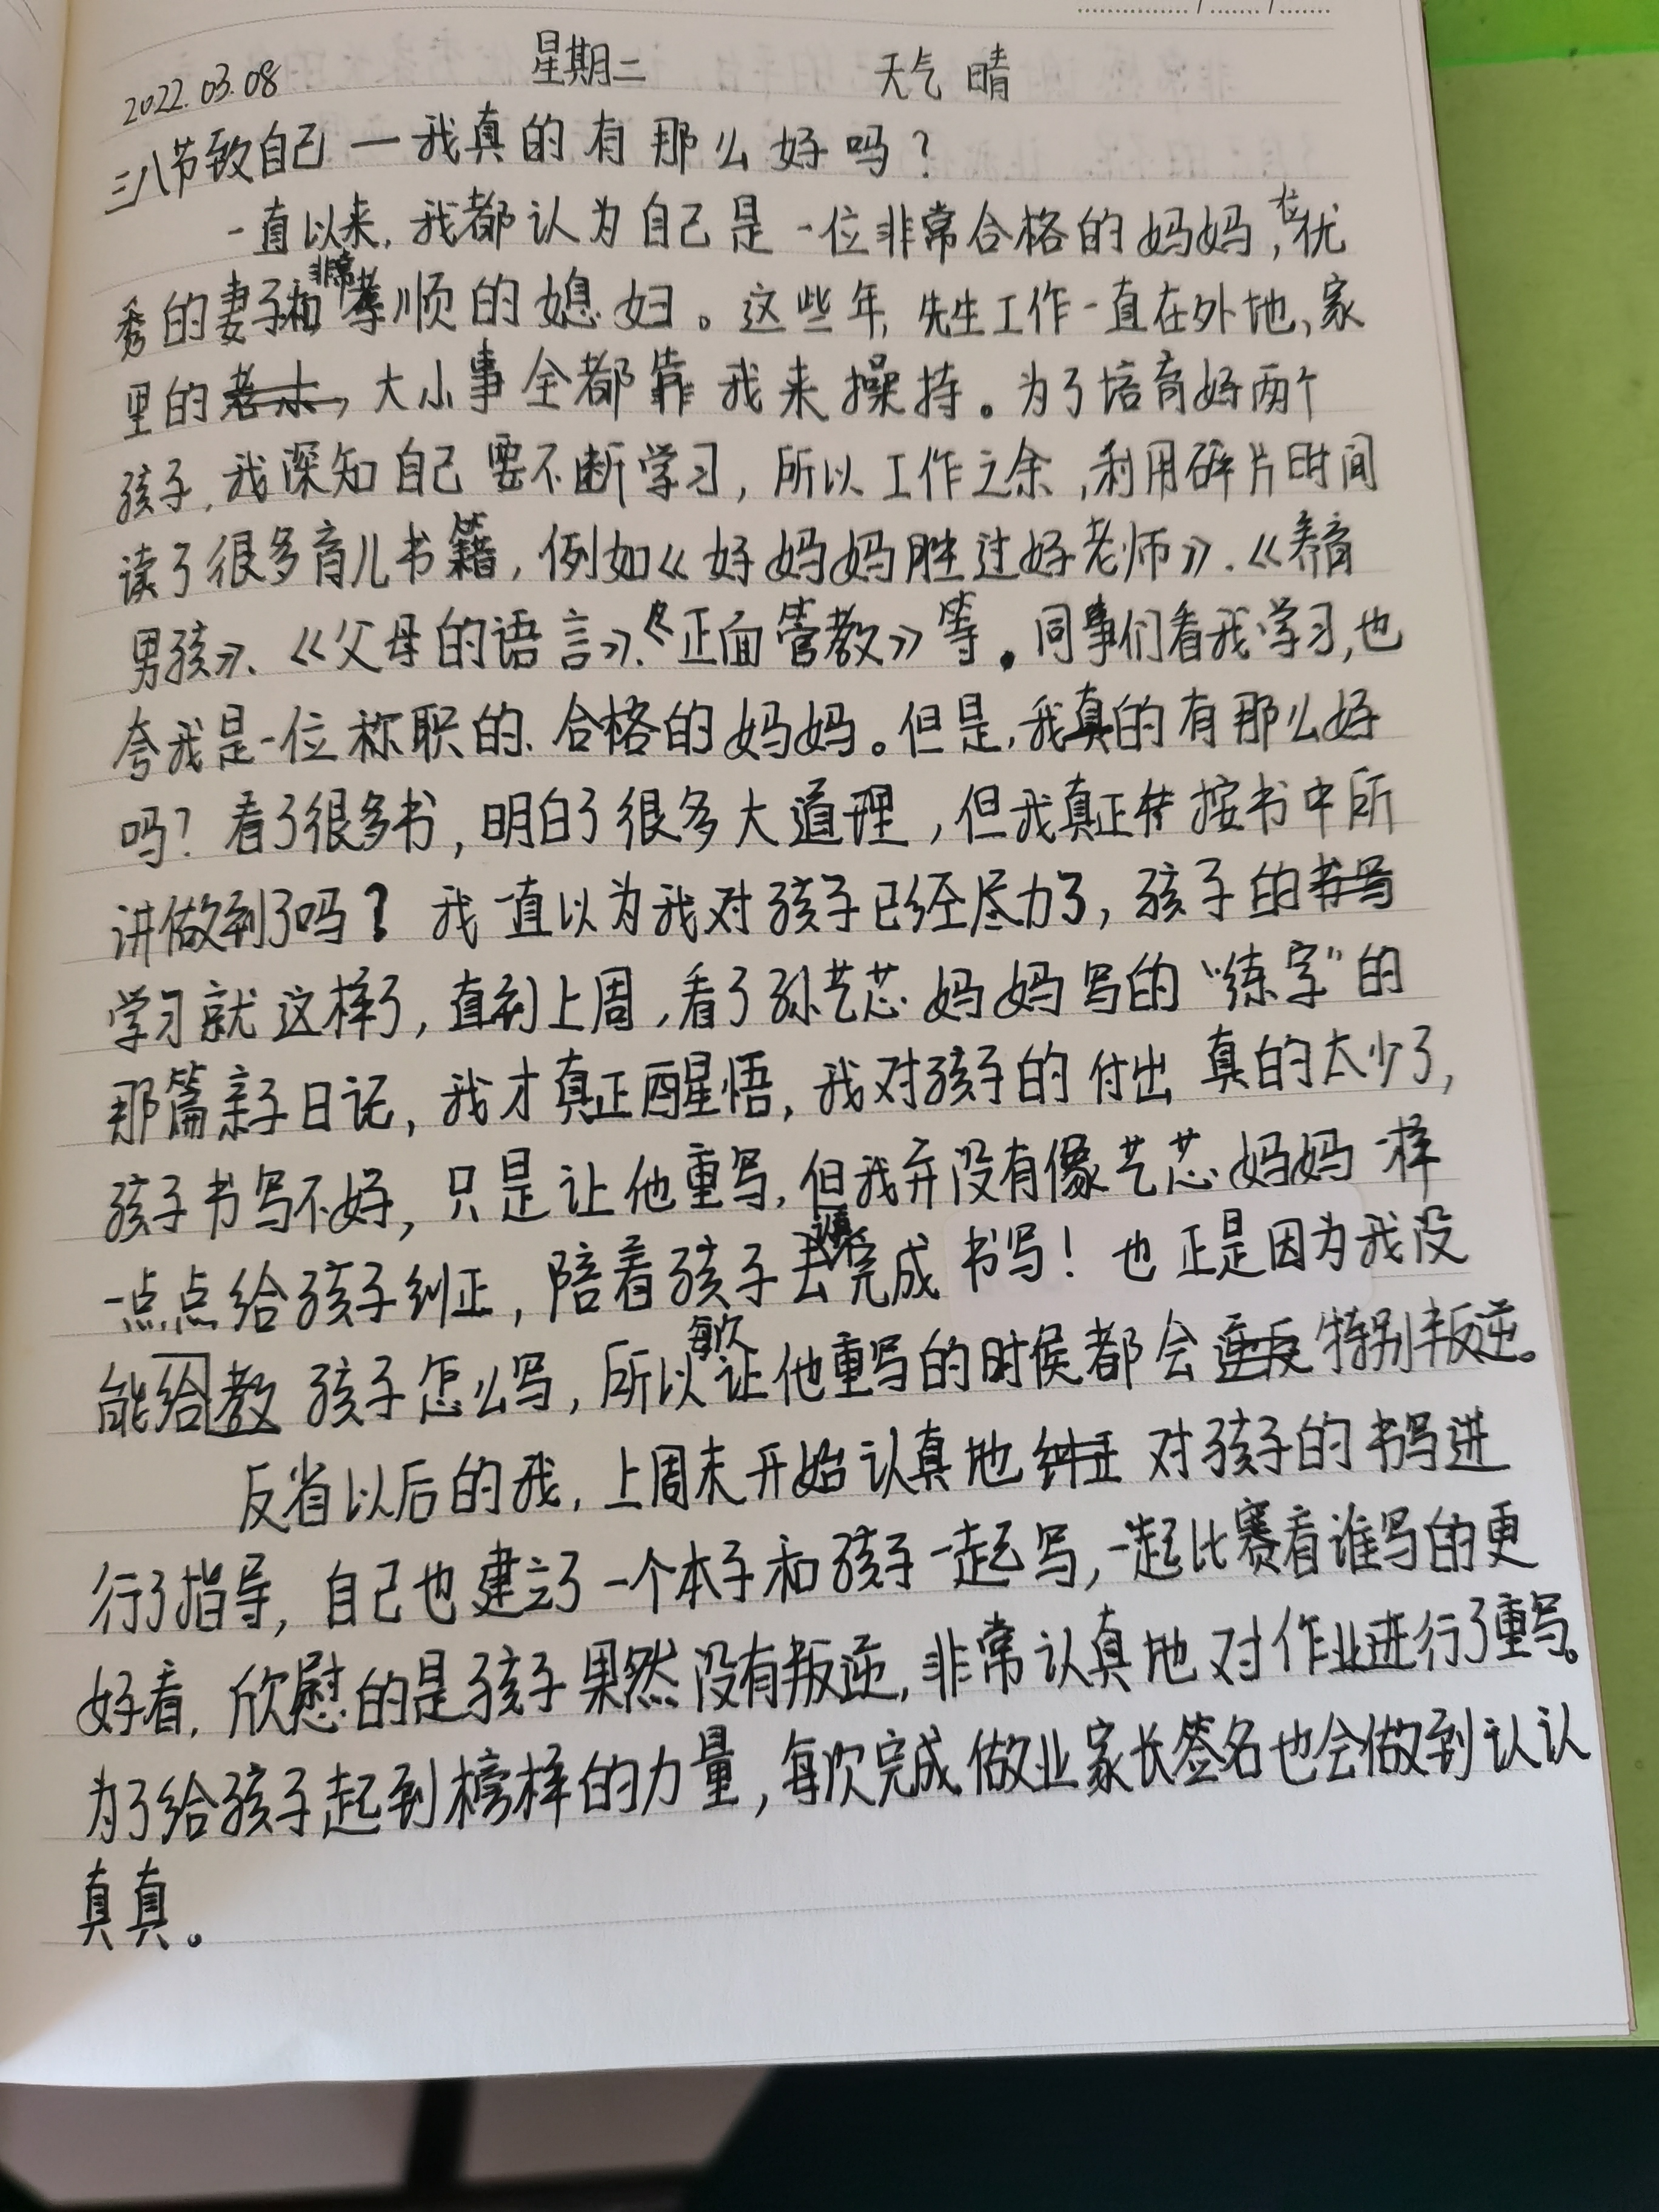 2022.03.08 星期二 天气 晴
三八节致自己 — 我真的有那么好吗？
一直以来，我都认为自己是一位非常合格的妈妈，优
秀的妻子和非常孝顺的媳妇。这些年，先生工作一直在外地，家
里的大小事全都靠我来操持。为了培育好两个
孩子，我深知自己要不断学习，所以工作之余，利用碎片时间
读了很多育儿书籍，例如《好妈妈胜过好老师》、《养育
男孩》、《父母的语言》、《正面管教》等。同事们看我学习，也
夸我是一位称职的、合格的妈妈。但是，我真的有那么好
吗？看了很多书，明白了很多大道理，但我真正按书中所
讲做到了吗？我一直以为我对孩子已经尽力了，孩子的
学习就这样了，直到上周，看了孙艺芯妈妈写的“练字”的
那篇亲子日记，我才真正醒悟，我对孩子的付出真的太少了，
孩子书写不好，只是让他重写，但我并没有像艺芯妈妈一样
一点点给孩子纠正，陪着孩子去完成书写！也正是因为我没
能给教孩子怎么写，所以每次让他重写的时候都会特别叛逆。
反省以后的我，上周末开始认真地对孩子的书写进
行了指导，自己也建立了一个本子和孩子一起写，一起比赛看谁写的更
好看，欣慰的是孩子果然没有叛逆，非常认真地对作业进行了重写。
为了给孩子起到榜样的力量，每次完成做业家长签名也会做到认认
真真。